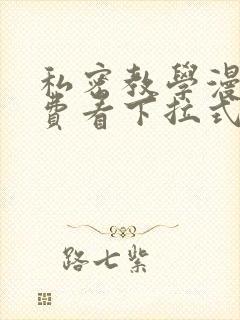 私密教學漫
費看下拉式
路七紫